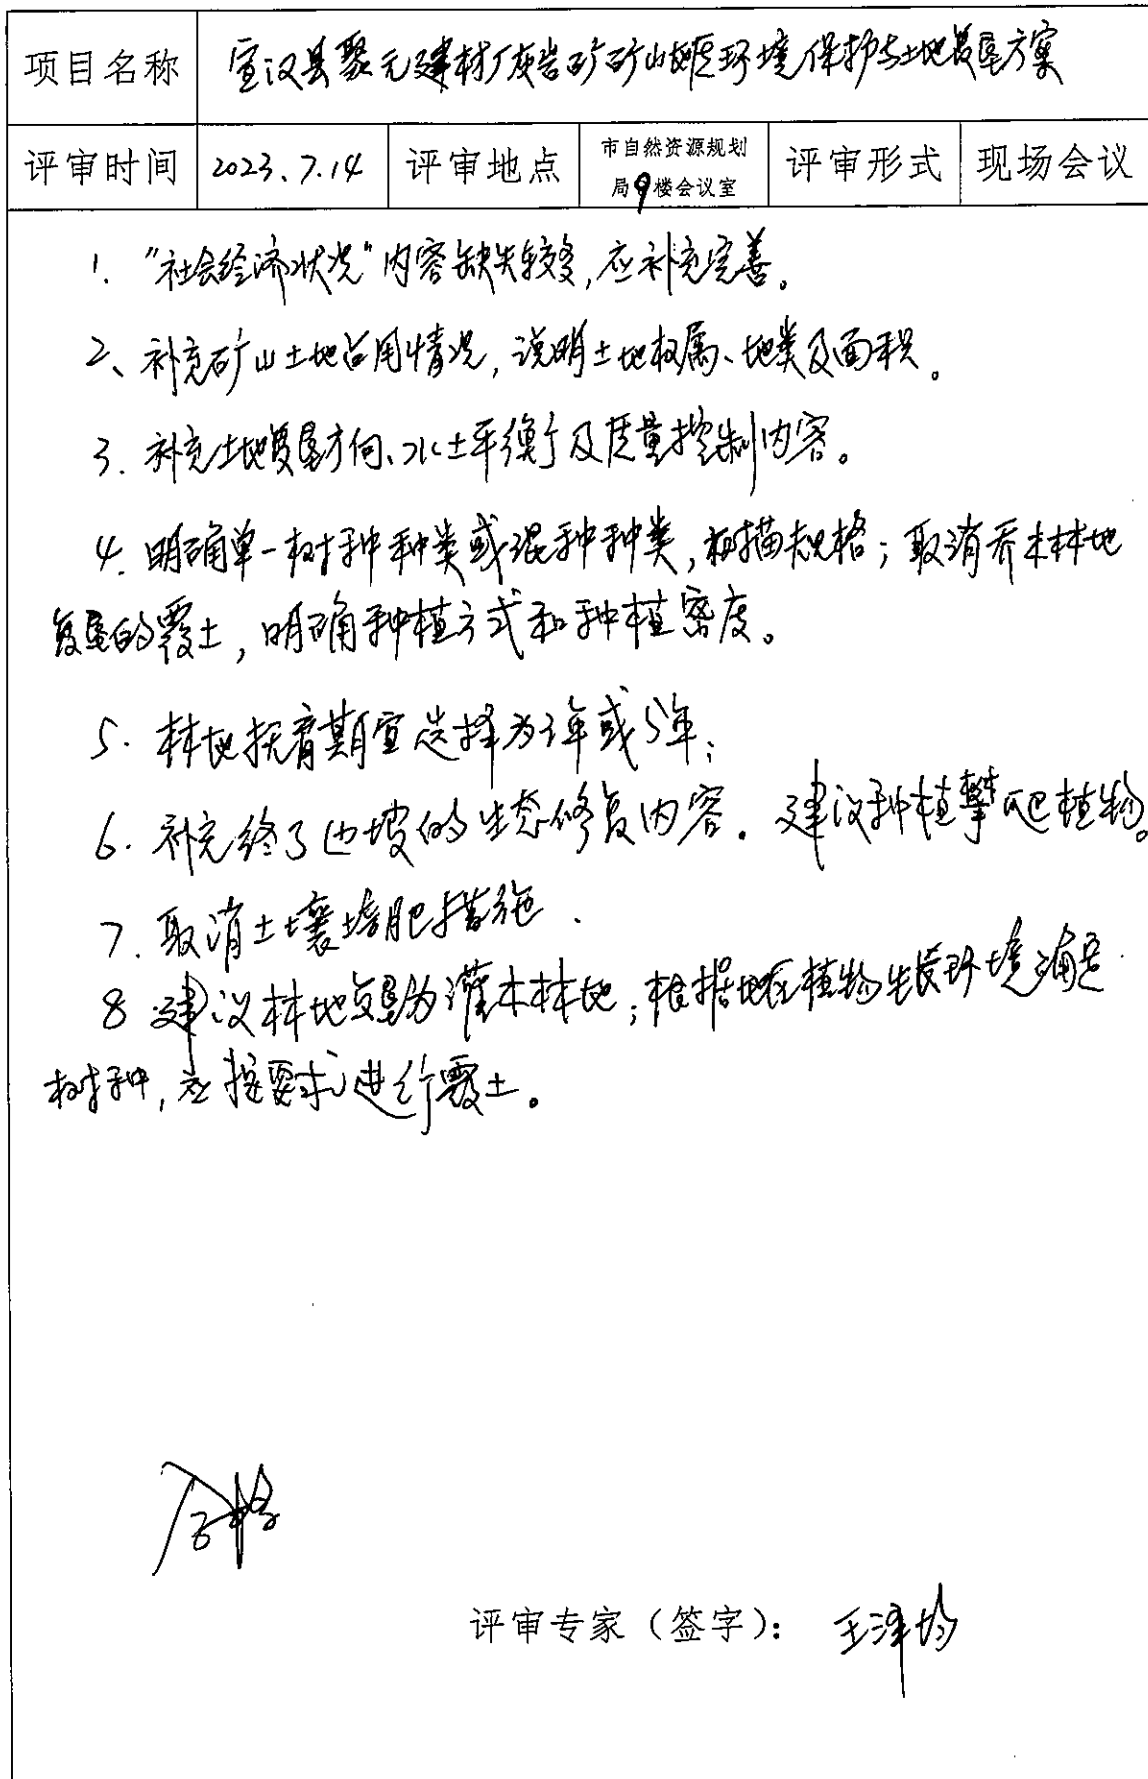 项目名称 宣汉县聚元建材厂灰岩矿矿山地质环境保护与土地复垦方案
评审时间 2023.7.14 评审地点 市自然资源规划局9楼会议室 评审形式 现场会议
1. "社会经济状况"内容缺失较多,应补充完善。
2、补充矿山土地占用情况,说明土地权属、地类及面积。
3. 补充土地复垦方向、水土平衡及质量控制内容。
4. 明确单一树种种类或混种种类,树苗规格;取消乔木林地
复垦的覆土,明确种植方式和种植密度。
5. 林地抚育期宜选择为3年或5年;
6. 补充终了边坡的生态修复内容. 建议种植攀爬植物。
7. 取消土壤培肥措施.
8 建议林地复垦为灌木林地;根据地区植物生长环境确定
树种,应按要求进行覆土。
评审专家(签字): 王泽均